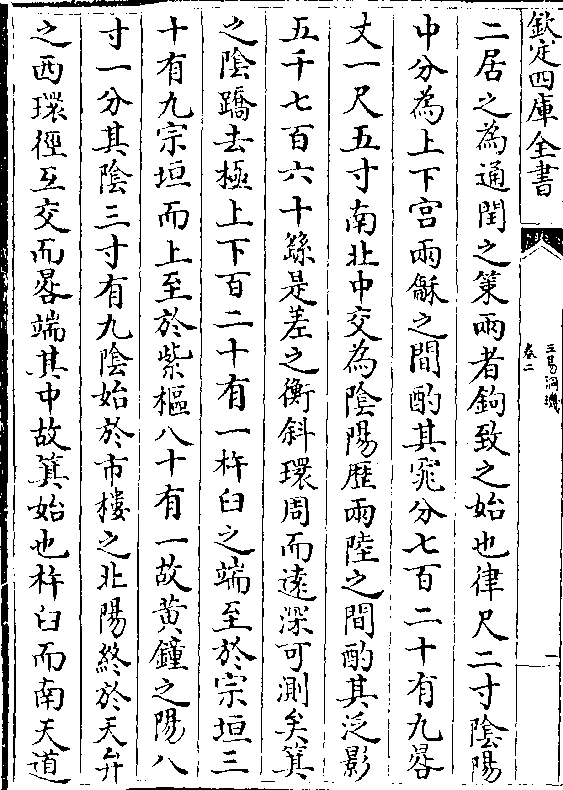 欽定四庫全書
三易洞璣
卷二
二居之為通閏之䇿兩者鉤致之始也律尺二寸陰陽
中分為上下宫兩龢之間酌其㝠分七百二十有九晷
丈一尺五寸南北中交為陰陽歷兩陸之間酌其泛影
五千七百六十繇是差之衡斜環周而遠深可測矣箕
之陰蹻去極上下百二十有一杵臼之端至於宗垣三
十有九宗垣而上至於紫樞八十有一故黄鐘之陽八
寸一分其陰三寸有九陰始於市樓之北陽終於天弁
之西環徑互交而晷端其中故箕始也杵臼而南天道